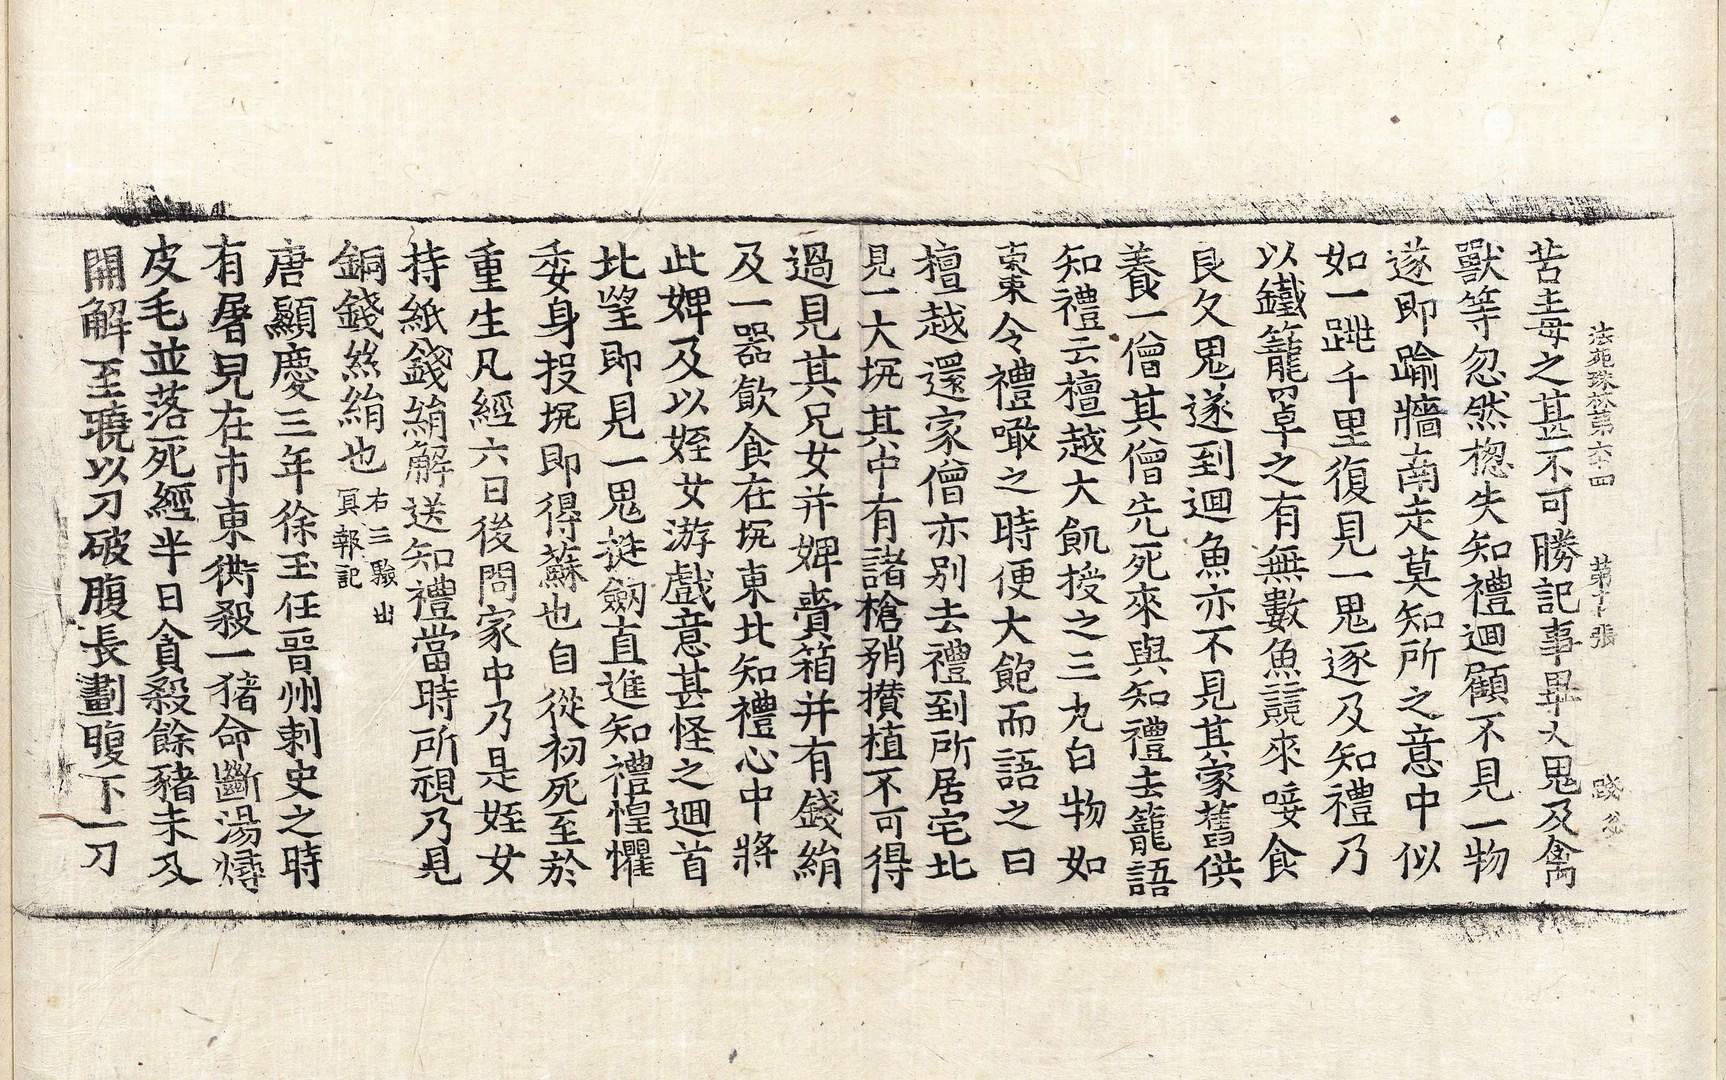 法苑珠林第六十四 第十張 踐
苦主毒之甚不可勝記事畢大鬼及禽
獸等忽然揔失知禮迴顧不見一物
遂即踰牆南走莫知所之意中似
如一跳千里復見一鬼逐及知禮乃
以鐵籠罩之有無數魚競來唼食
良久鬼遂到迴魚亦不見其家舊供
養一僧其僧先死來與知禮去籠語
知禮云檀越大飢授之三丸白物如
棗令禮噉之時便大飽而語之曰
檀越還家僧亦別去禮到所居宅北
見一大坑其中有諸槍矟攢植不可得
過見其兄女并婢賷箱并有錢絹
及一器飲食在坑東北知禮心中將
此婢及以姪女游戲意甚怪之迴首
北望即見一鬼挺劒直進知禮惶懼
委身投坑即得蘇也自從初死至於
重生凡經六日後問家中乃是姪女
持紙錢絹解送知禮當時所視乃見
銅錢絲絹也 右三驗出冥報記
唐顯慶三年徐玉任晉州刺史之時
有屠兒在市東街殺一猪命斷湯燖
皮毛並落死經半日貪殺餘豬未及
開解至曉以刀破腹長劃腹下一刀